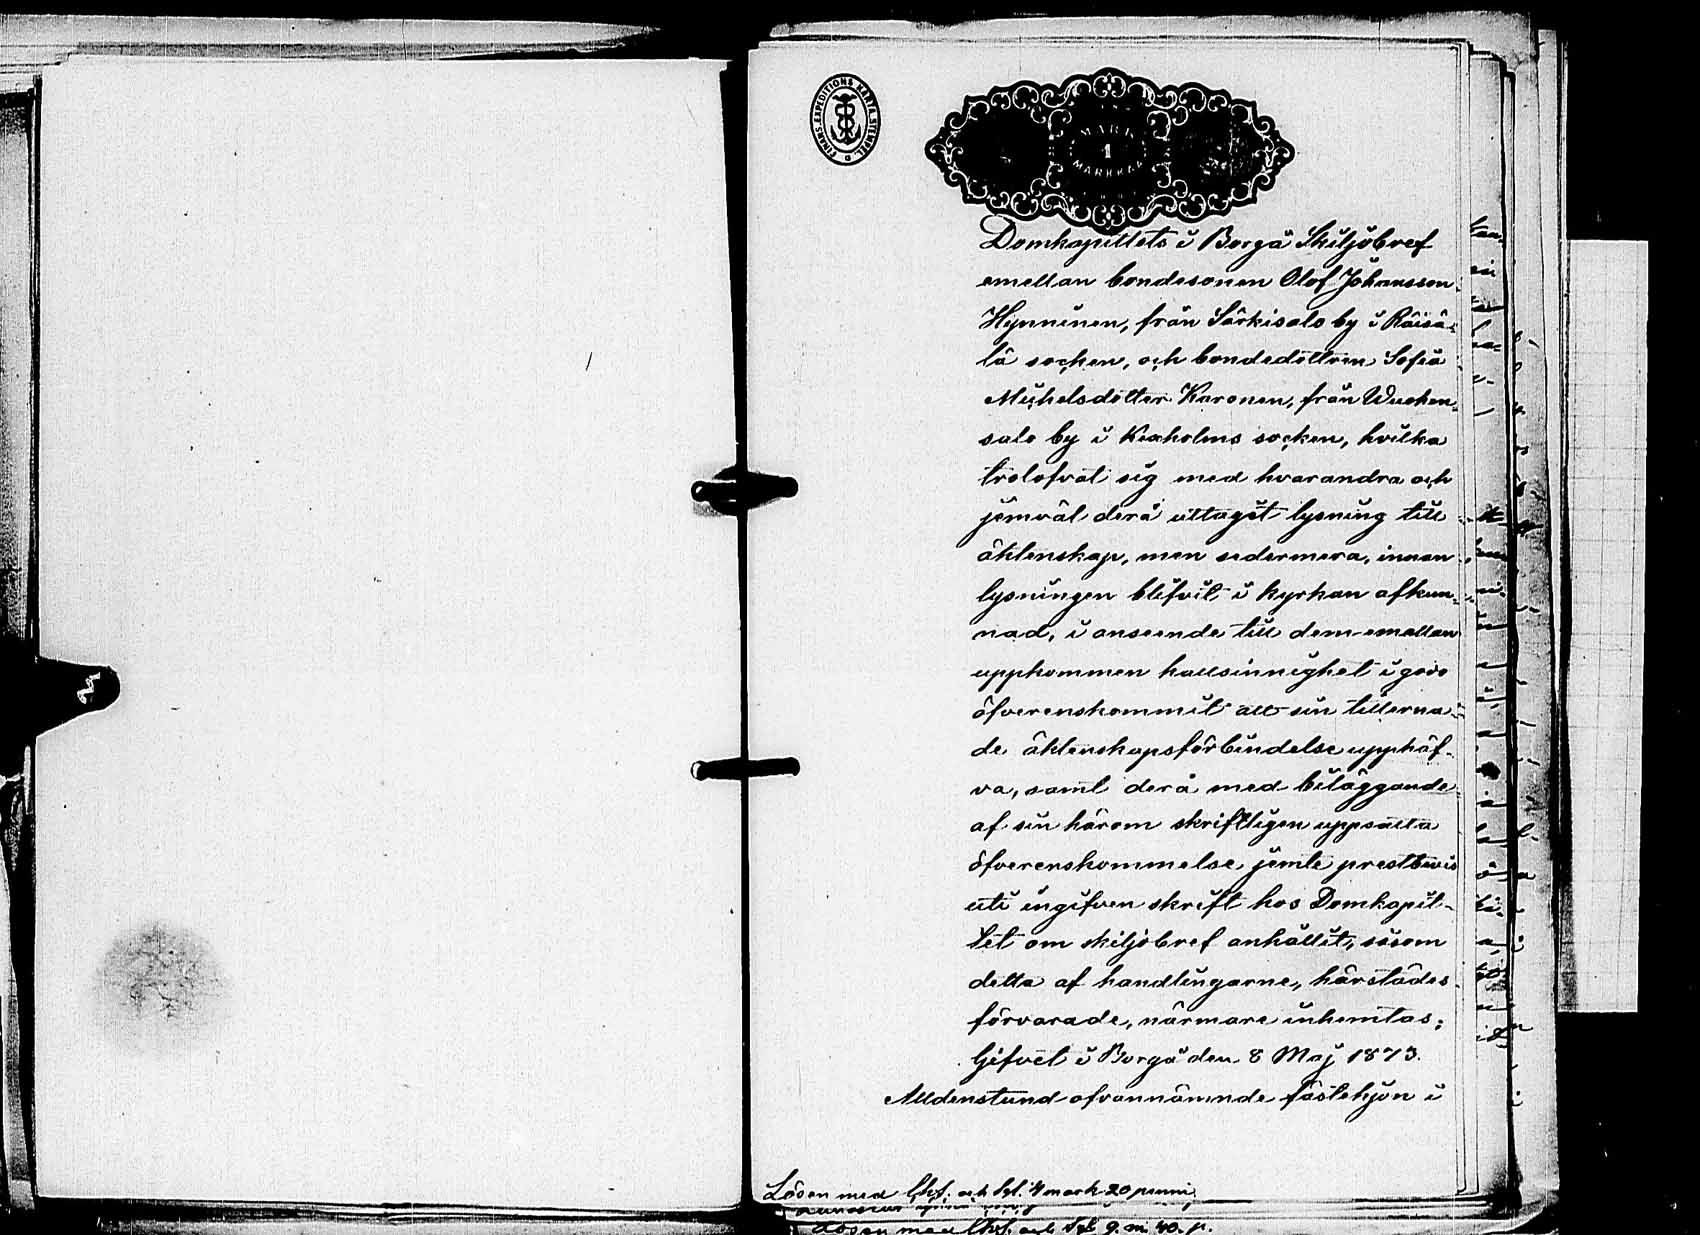 FINANS. EXPEDITIONS. KARTA. STEMPEL.
MARK
1
MARKKA
Domkapitlets i Borgå Skiljobref
emellan bondesonen Olof Johansson
Hynninen, från Särkisalo by i Räisä-
lä socken, och bondedottren Sofia
Michelsdotter Karonen, från Wuohen-
salo by i Kexholms socken, hvilka
trolofvat sig med hvarandra och
jemväl derå uttagit lysning till
äktenskap, men sedermera, innan
lysningen blifvit i kyrkan afkun-
nad, i anseende till dem emellan
uppkommen kallsinnighet i godo
öfverenskommit att sin tillerna-
de äktenskapsförbindelse upphäf-
va, samt derå med biläggande
af sin härom skriftligen uppsatta
öfverenskommelse jemte prestbevis
uti ingifven skrift hos Domkapit-
let om skiljobref anhållit, såsom
detta af handlingarne, härstädes
förvarade, närmare inhemtas;
Gifvet i Borgå den 8 Maj 1873.
Alldenstund ofvannämnde fästehjon i
Lösen med och 4 mark 20 penni
Lösen med 9 m. 40. p.